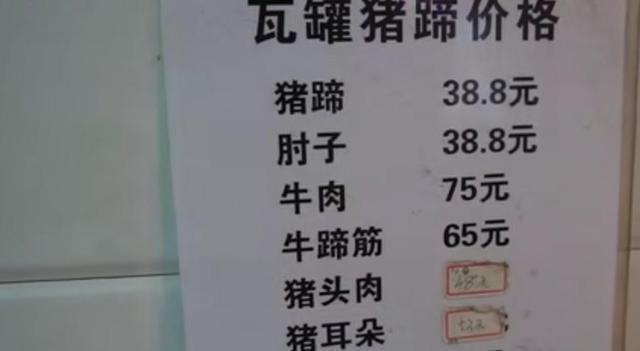 瓦罐猪蹄价格
猪蹄 38.8元
肘子 38.8元
牛肉 75元
牛蹄筋 65元
猪头肉 48元
猪耳朵